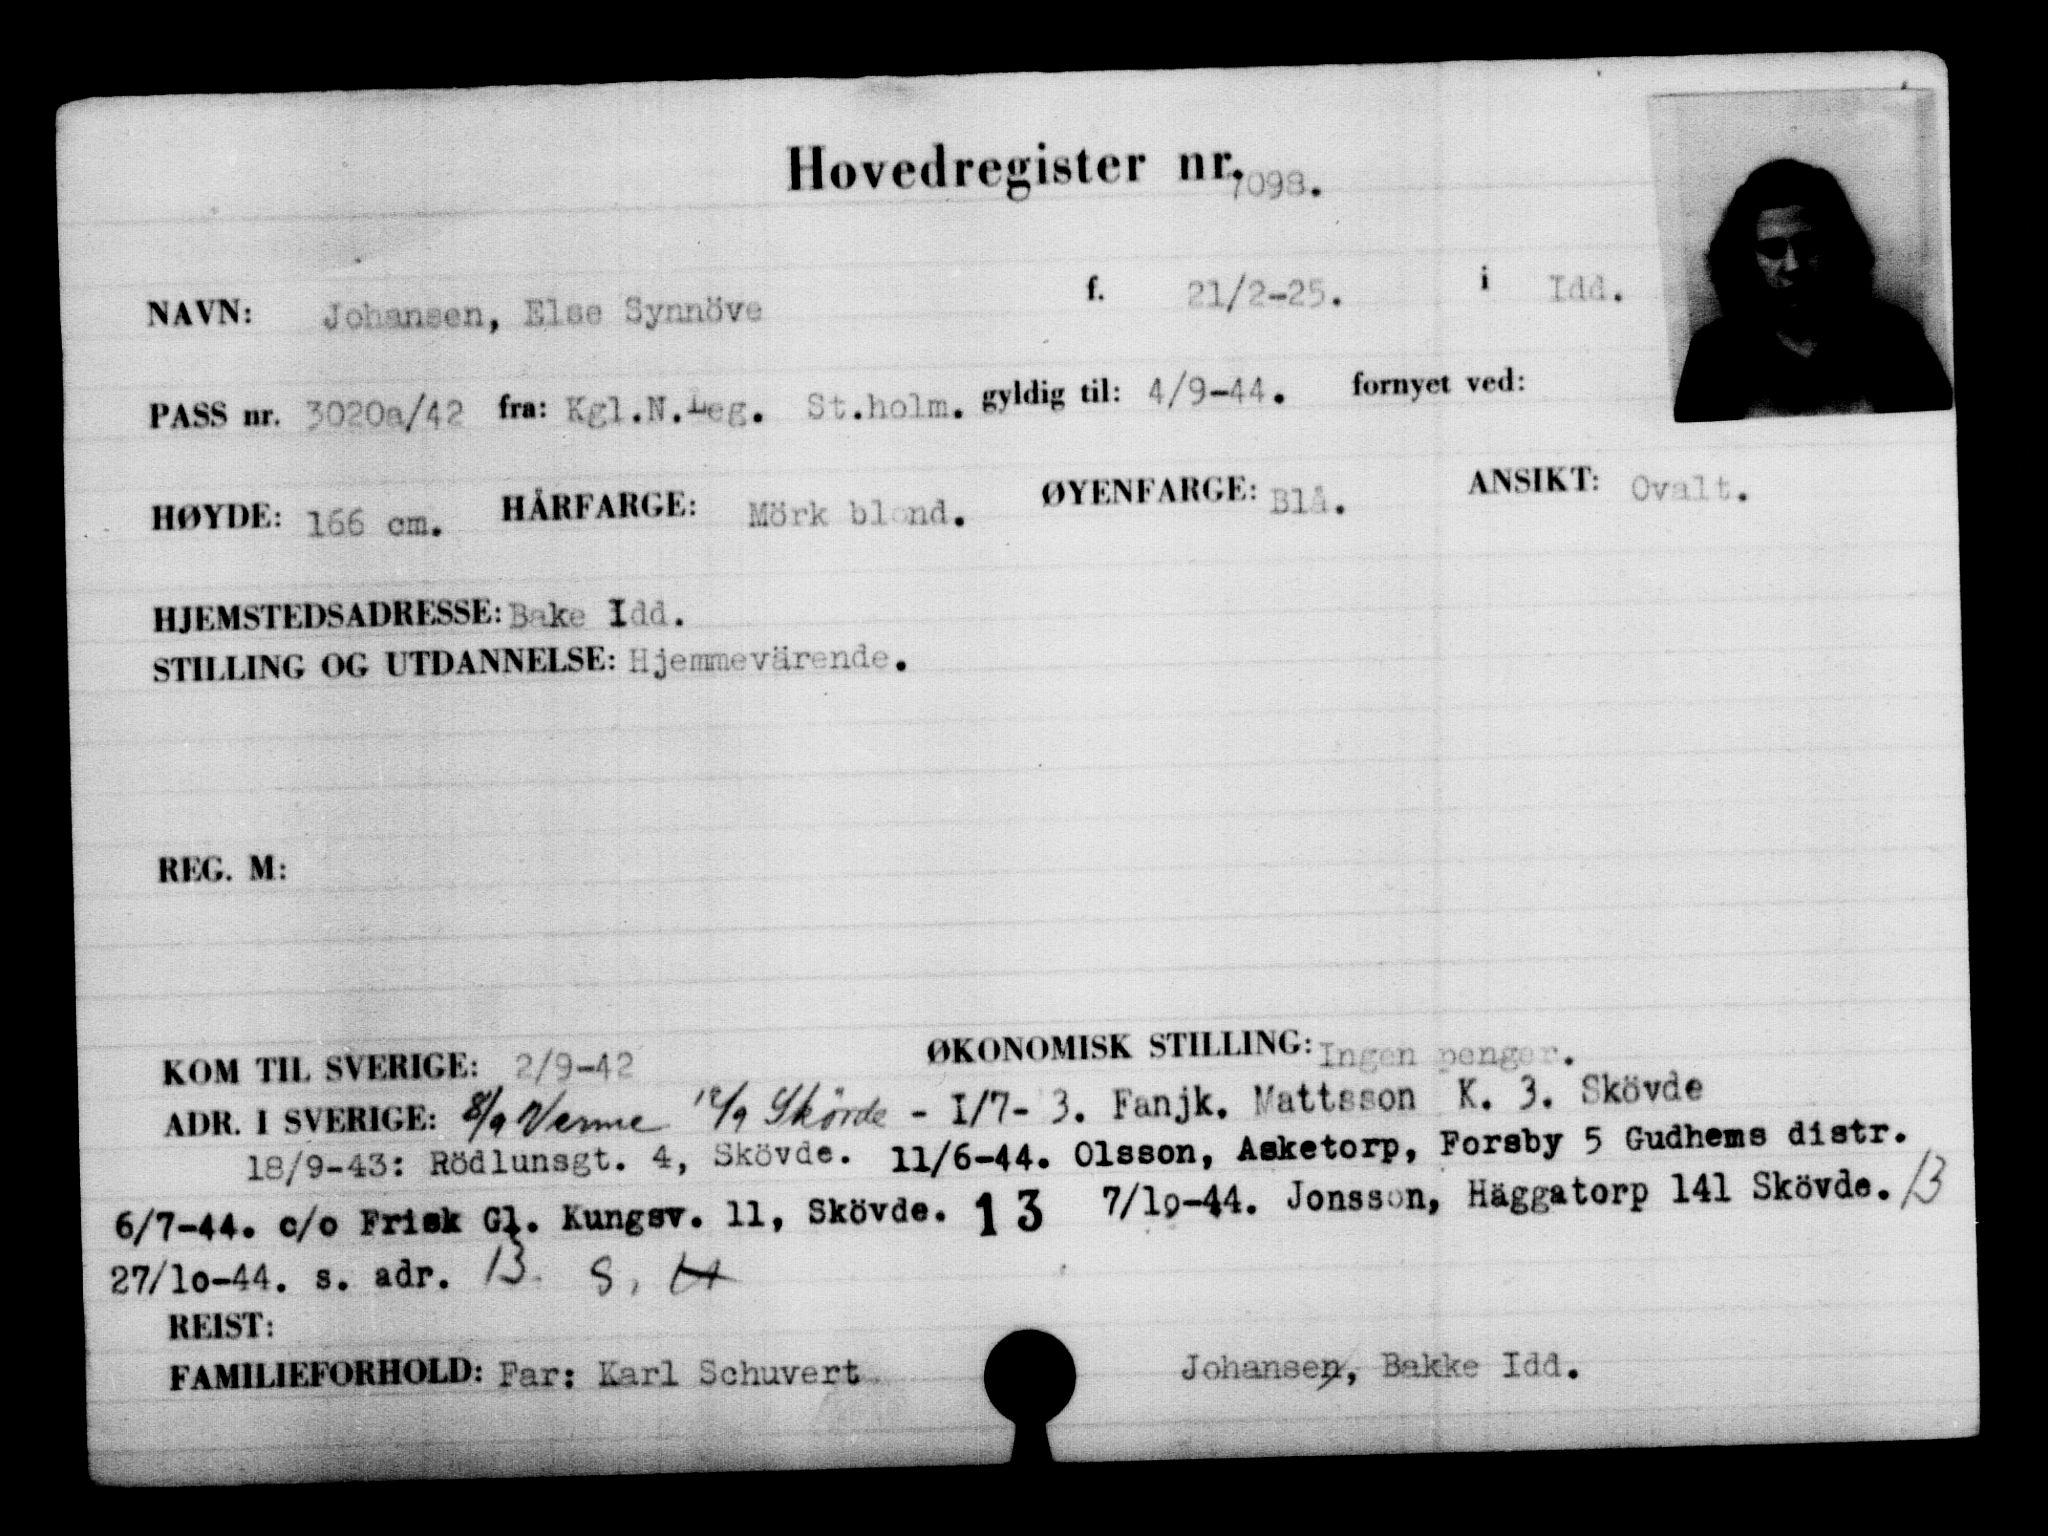 Hovedregister nr. 7098.
NAVN: Johansen, Else Synnöve f. 21/2-25. i Idd.
PASS nr. 3020a/42 fra: Kgl.N.Leg. St.holm. gyldig til: 4/9-44. fornyet ved:
HØYDE: 166 cm. HÅRFARGE: Mörk blond. ØYENFARGE: Blå. ANSIKT: Ovalt.
HJEMSTEDSADRESSE: Bake Idd.
STILLING OG UTDANNELSE: Hjemmevärende.
REG. M:
KOM TIL SVERIGE: 2/9-42 ØKONOMISK STILLING: Ingen penger.
ADR. I SVERIGE: 8/9 Verme 12/9 Skövde - I/7- 3. Fanjk. Mattsson K. 3. Skövde
18/9-43: Rödlunsgt. 4, Skövde. 11/6-44. Olsson, Asketorp, Forsby 5 Gudhems distr.
6/7-44. c/o Frisk Gl. Kungsv. 11, Skövde. 13 7/10-44. Jonsson, Häggatorp 141 Skövde. 13
27/10-44. s. adr. 13. S.
REIST:
FAMILIEFORHOLD: Far: Karl Schuvert Johansen, Bakke Idd.